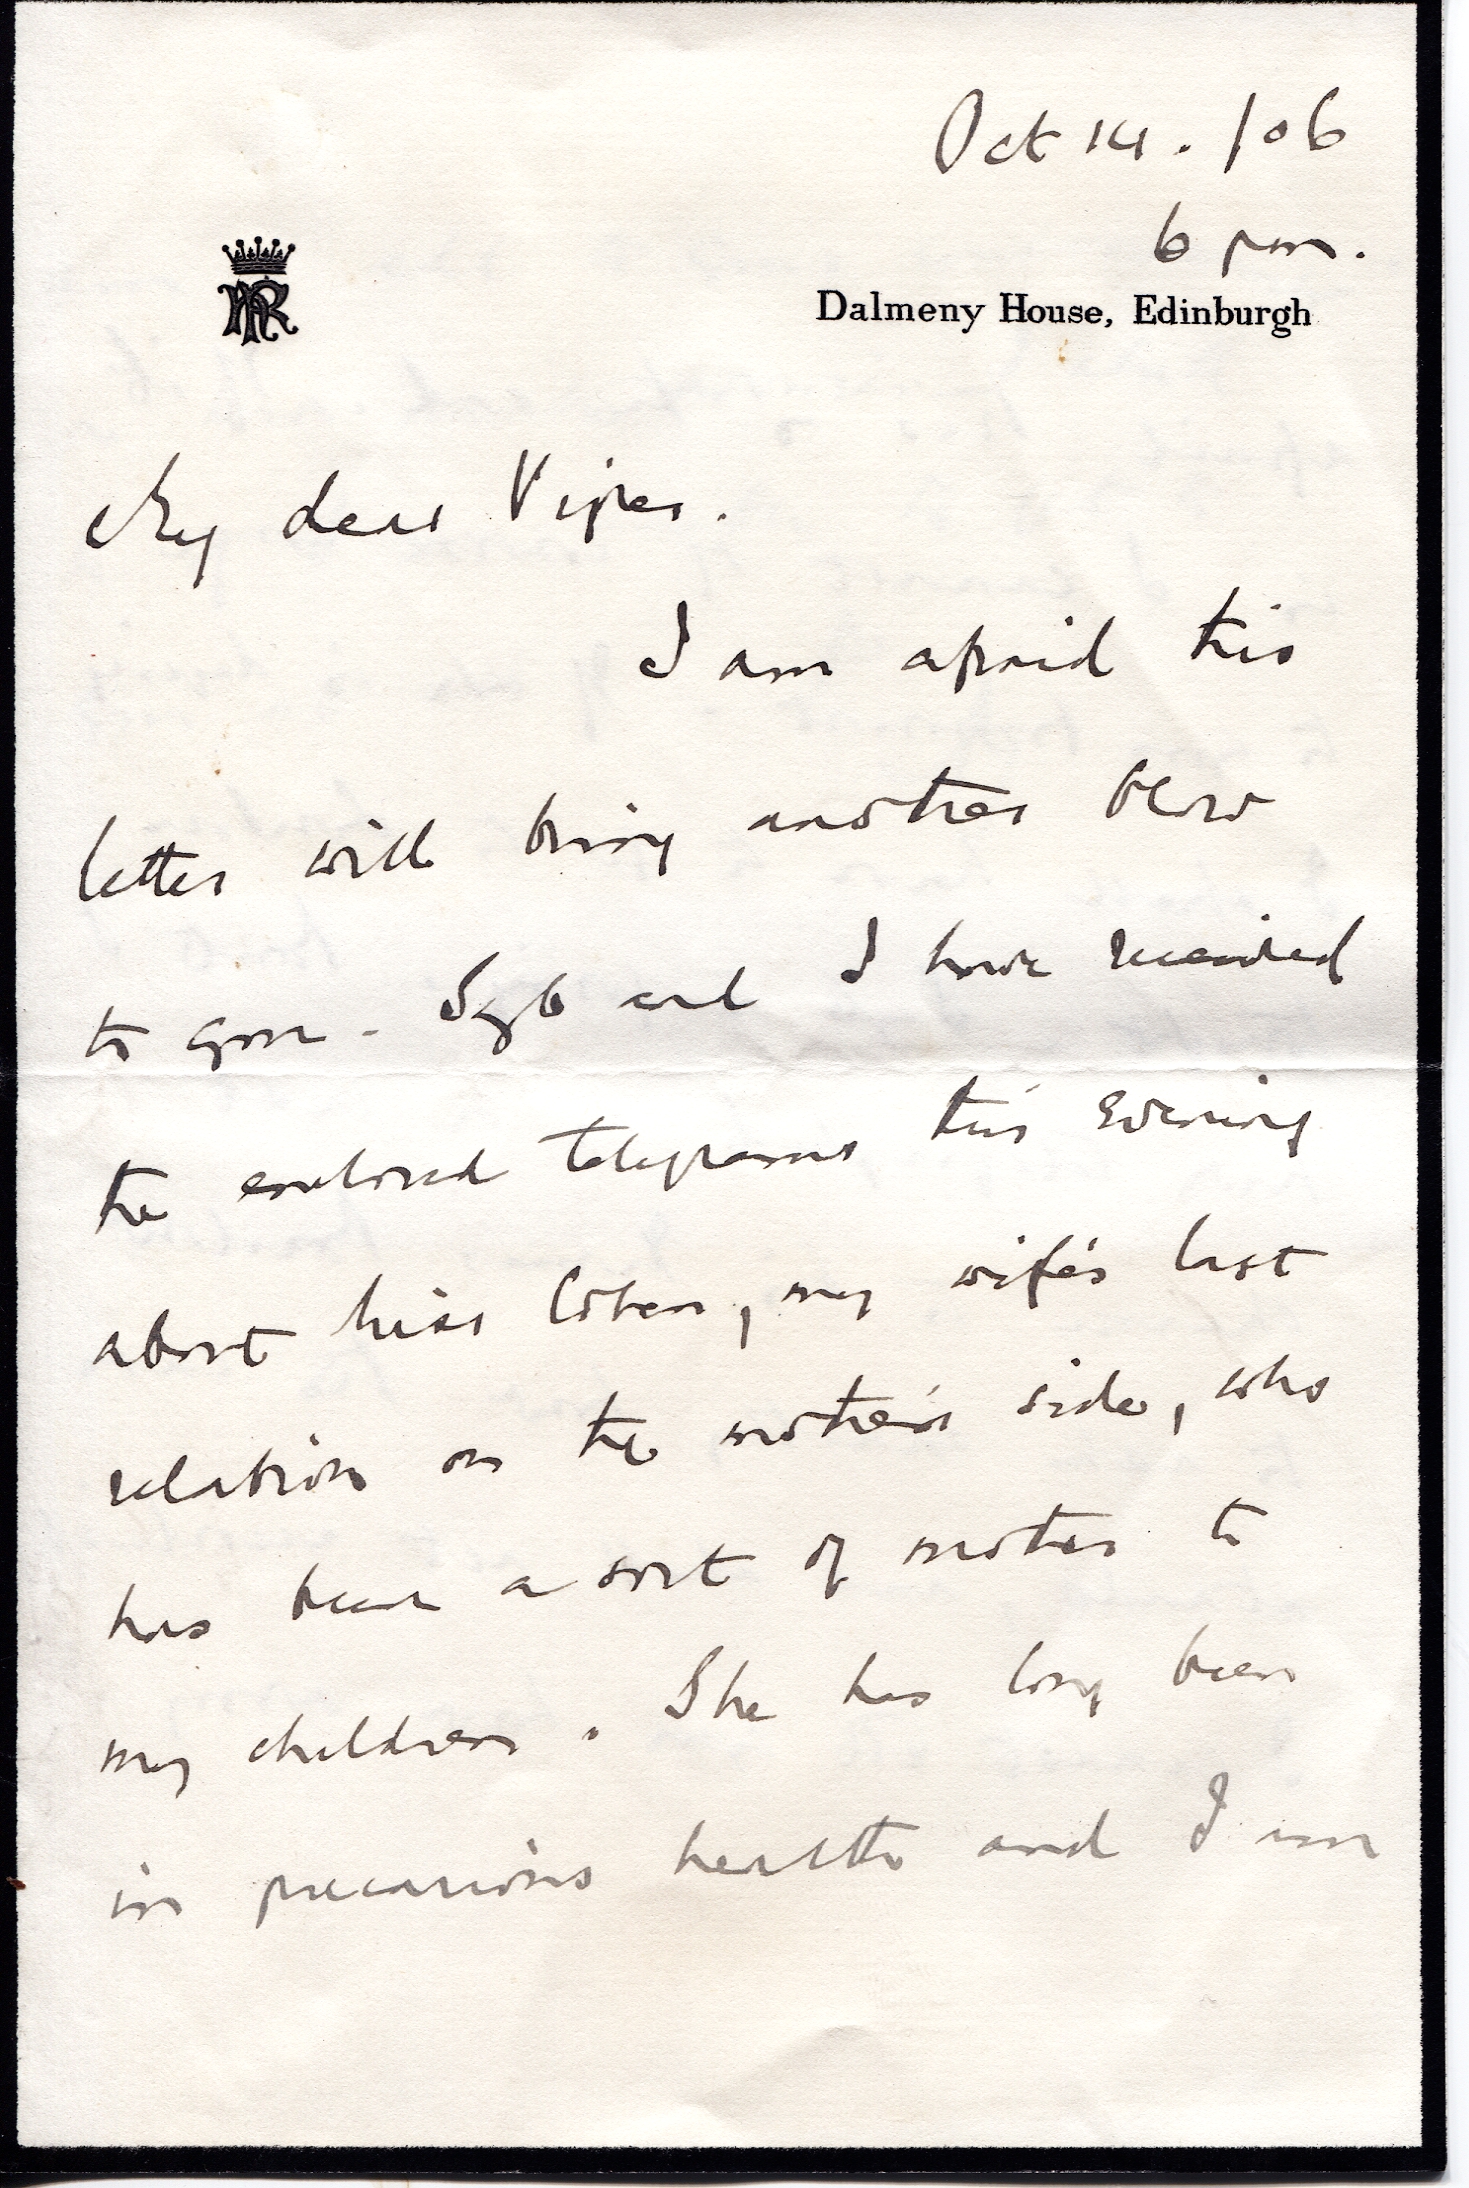 Oct 14. /06
6 pm.
Dalmeny House, Edinburgh
My dear Viper.
I am afraid this
letter will bring another blow
to you. Syb and I have received
the enclosed telegrams this evening
about Miss Cohen, my wife's last
relation on the mother's side, who
has been a sort of mother to
my children. She has long been
in precarious health and I am